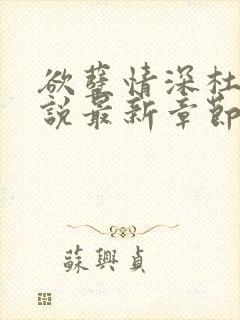 欲孽情深杜
說最新章節
蘇興貞